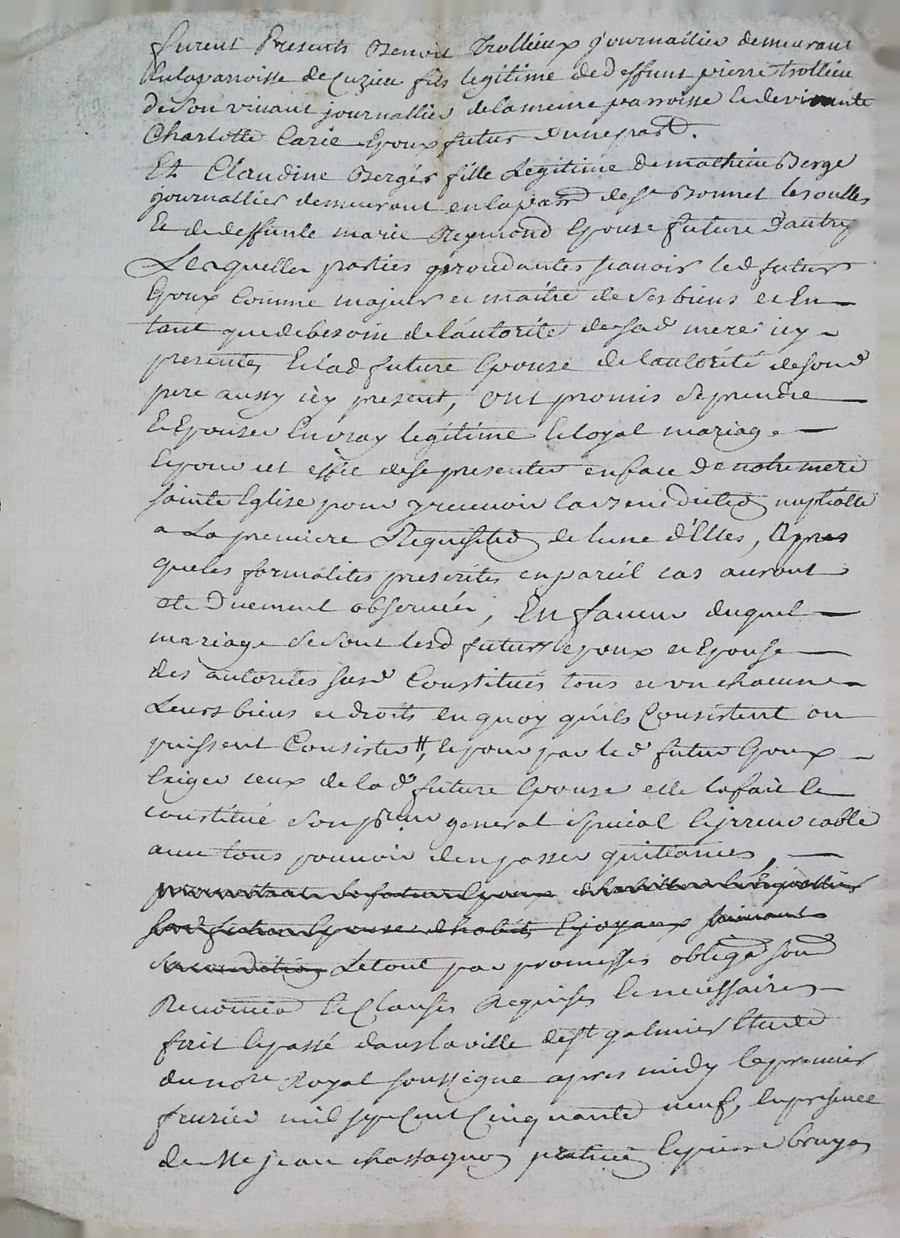 furent presents Benoit Trollieux journallier demeurant
en la parroisse de Cuzieu fils legitime de deffunt pierre trollieu
de son vivant journallier de la meme parroisse et de vivante
Charlotte Carie Epoux futur d'une part.
Et Claudine Berger fille Legitime de mathieu Berge
journallier demeurant en la parr de st Bonnet les oulles
Et de deffunte marie Reymond Epouse future d'autre
Lesquelles parties procedantes scavoir led futur
Epoux comme majeur et maitre de ses biens et En
tant que de besoin de l'autorité de sad mere icy
presente, Et lad future Epouse de l'autorité de sond
pere aussy icy present, ont promis se prendre
et Epouser en vray legitime et loyal mariage
et pour cet effet de se presenter en face de notre mere
sainte Eglise pour y recevoir la Benediction nuptialle
a La premiere Requisition de l'une d'Elles, apres
que les formalités prescrites en pareil cas auront
eté Duement observées; En faveur duquel
mariage se sont lesd futurs epoux et Epouse
des autorités susd Constitués tous et un chacuns
Leurs biens et droits en quoy qu'ils Consistent ou
puissent Consister #, et pour par led futur Epoux
Exiger ceux de lad future Epouse elle la fait et
constitué son pr general special et irrevocable
avec tous pouvoir d'en passer quittances,
promettant le futur Epoux d'habiller
sad future Epouse d'habits et joyaux suivant
sa condition Le tout par promesses obliga soud
Renoncia et Clauses Requises et necessaires
fait et passé dans la ville de st galmier Etude
du nore Royal soussigne apres midy le premier
fevrier mil sept cent cinquante neuf, en presence
de Me jean chassagnon praticien et pierre bruyas